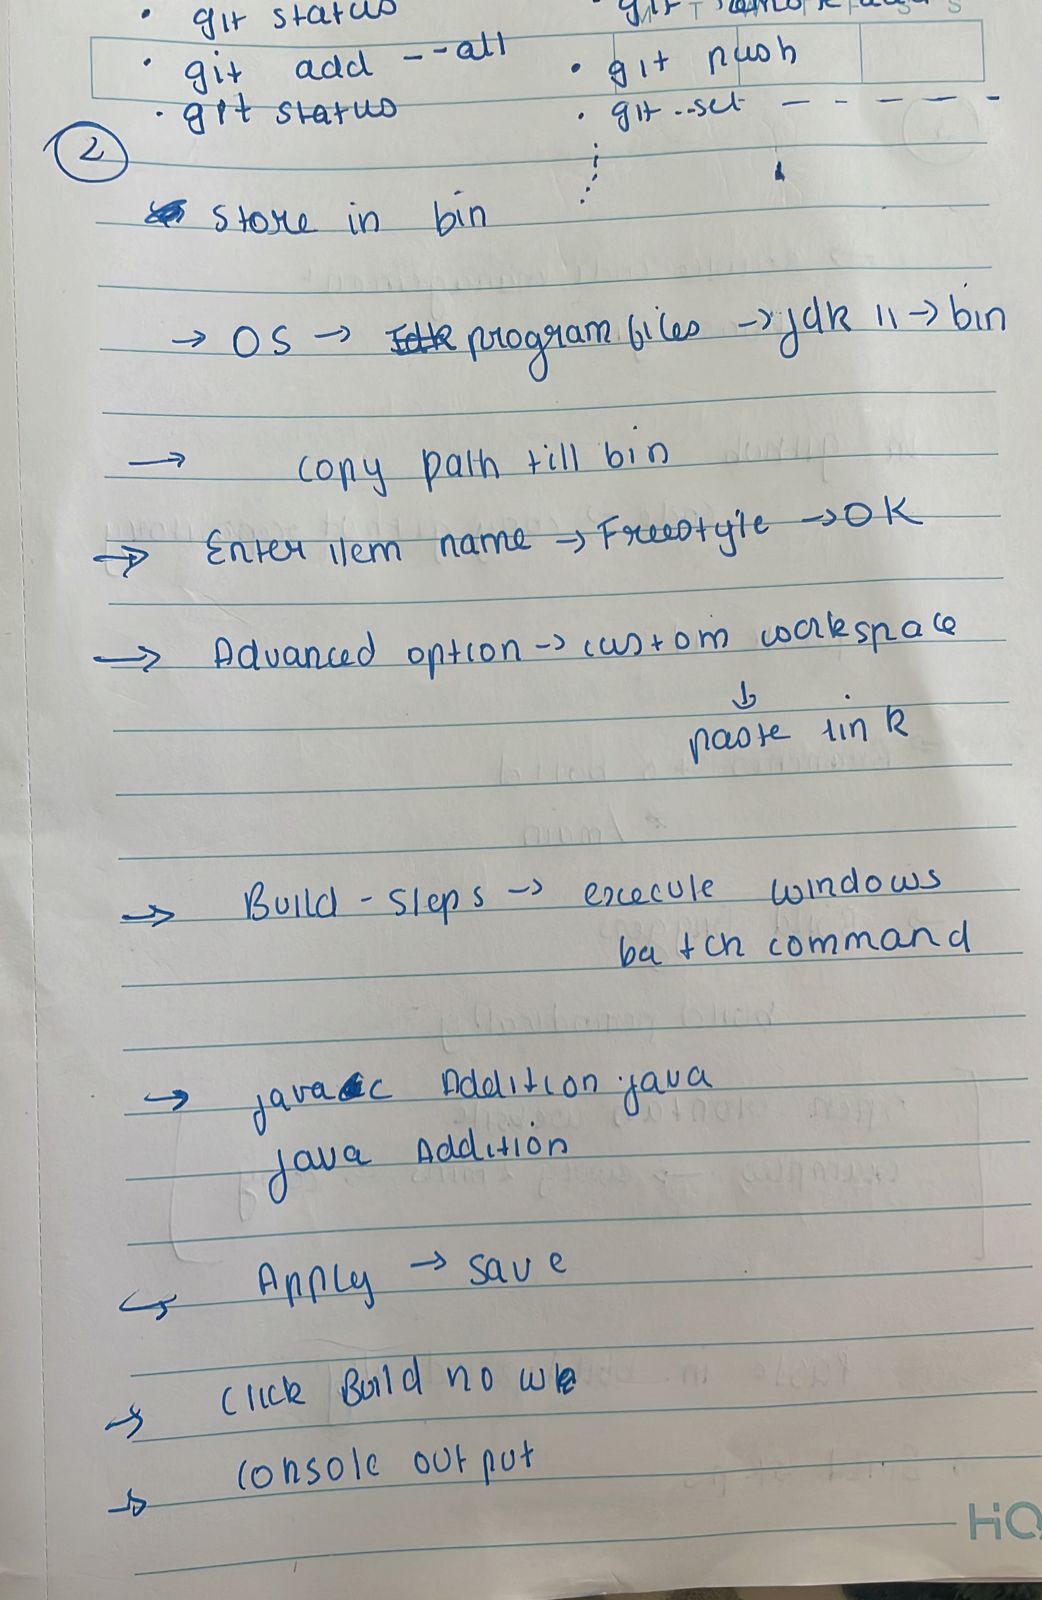 • git status
• git add --all
• git status
• git push
• git --set - - - - -
2
store in bin
→ OS → program files → jdk 11 → bin
→ copy path till bin
→ Enter item name → Freestyle → OK
→ Advanced option → custom workspace
↓
paste link
→ Build - Steps → execute windows
batch command
→ javac Addition.java
java Addition
→ Apply → save
→ click Build now
→ console output
HQ